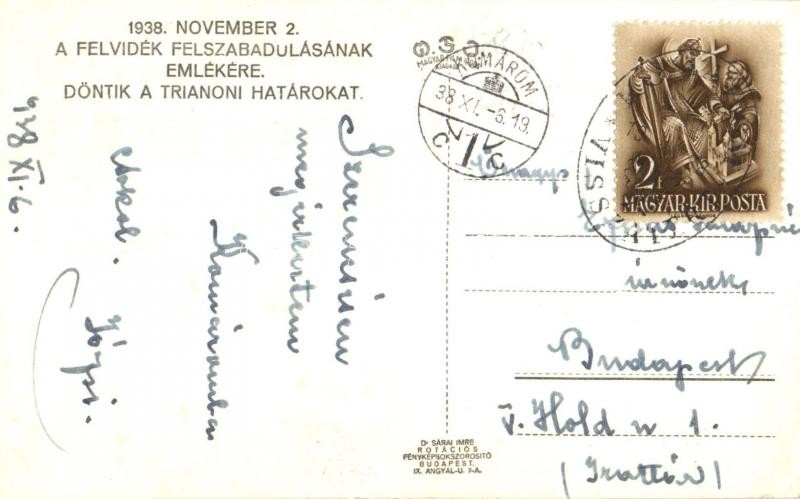 1938. NOVEMBER 2.
A FELVIDÉK FELSZABADULÁSÁNAK
EMLÉKÉRE.
DÖNTIK A TRIANONI HATÁROKAT.
938 XI-6.
Szerencsésen
megérkeztem
Komáromba
csókol.
Józsi.
O.S.J.
MAGYAR FILM
KIADÁSA
KOMÁROM
38 XI.-6.19
2f
MAGYAR·KIR·POSTA
Őnagys
úrnőnek
Budapest
V. Hold u 1.
Dr SÁRAI IMRE
ROTÁCIÓS
FÉNYKÉPSOKSZOROSITÓ
BUDAPEST.
IX. ANGYAL-U. 7-A.